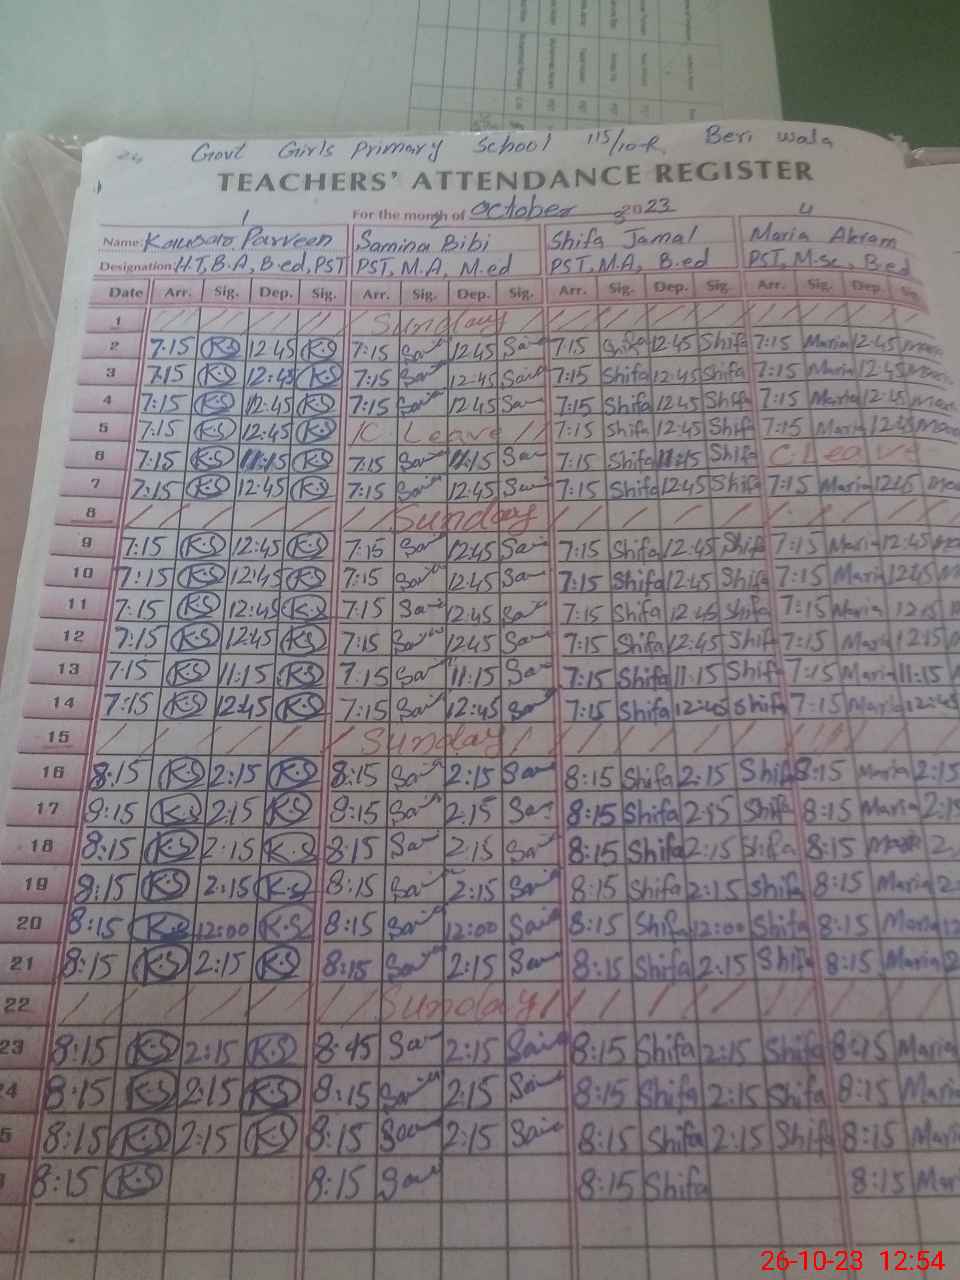 Govt Girls Primary School 115/10-R Beri wala
TEACHERS' ATTENDANCE REGISTER
For the month of October 2023
1 2 3 4
Name: Kausar Parveen Samina Bibi Shifa Jamal Maria Akram
Designation: H.T, B.A, B.ed, PST PST, M.A, M.ed PST, M.A, B.ed PST, M.Sc, B.ed
Date Arr. Sig. Dep. Sig. Arr. Sig. Dep. Sig. Arr. Sig. Dep. Sig. Arr. Sig. Dep. Sig.
1 Sunday
2 7:15 K.S 12:45 K.S 7:15 12:45 7:15 Shifa 12:45 Shifa 7:15 Maria 12:45
3 7:15 K.S 12:45 K.S 7:15 12:45 7:15 Shifa 12:45 Shifa 7:15 Maria 12:45
4 7:15 K.S 12:45 K.S 7:15 12:45 7:15 Shifa 12:45 Shifa 7:15 Maria 12:45
5 7:15 K.S 12:45 K.S C Leave 7:15 Shifa 12:45 Shifa 7:15 Maria 12:45
6 7:15 K.S 11:15 K.S 7:15 11:15 7:15 Shifa 11:15 Shifa C Leave
7 7:15 K.S 12:45 K.S 7:15 12:45 7:15 Shifa 12:45 Shifa 7:15 Maria 12:45
8 Sunday
9 7:15 K.S 12:45 K.S 7:15 12:45 7:15 Shifa 12:45 Shifa 7:15 Maria 12:45
10 7:15 K.S 12:45 K.S 7:15 12:45 7:15 Shifa 12:45 Shifa 7:15 Maria 12:45
11 7:15 K.S 12:45 K.S 7:15 12:45 7:15 Shifa 12:45 Shifa 7:15 Maria 12:45
12 7:15 K.S 12:45 K.S 7:15 12:45 7:15 Shifa 12:45 Shifa 7:15 Maria 12:15
13 7:15 K.S 11:15 K.S 7:15 11:15 7:15 Shifa 11:15 Shifa 7:15 Maria 11:15
14 7:15 K.S 12:45 K.S 7:15 12:45 7:15 Shifa 12:45 Shifa 7:15 Maria 12:45
15 Sunday
16 8:15 K.S 2:15 K.S 8:15 2:15 8:15 Shifa 2:15 Shifa 8:15 Maria 2:15
17 8:15 K.S 2:15 K.S 8:15 2:15 8:15 Shifa 2:15 Shifa 8:15 Maria 2:15
18 8:15 K.S 2:15 K.S 8:15 2:15 8:15 Shifa 2:15 Shifa 8:15 Maria
19 8:15 K.S 2:15 K.S 8:15 2:15 8:15 Shifa 2:15 Shifa 8:15 Maria
20 8:15 K.S 12:00 K.S 8:15 12:00 8:15 Shifa 12:00 Shifa 8:15 Maria
21 8:15 K.S 2:15 K.S 8:15 2:15 8:15 Shifa 2:15 Shifa 8:15 Maria
22 Sunday
23 8:15 K.S 2:15 K.S 8:45 2:15 8:15 Shifa 2:15 Shifa 8:15 Maria
4 8:15 K.S 2:15 K.S 8:15 2:15 8:15 Shifa 2:15 Shifa 8:15 Maria
5 8:15 K.S 2:15 K.S 8:15 2:15 8:15 Shifa 2:15 Shifa 8:15 Maria
8:15 K.S 8:15 8:15 Shifa 8:15 Mar
26-10-23 12:54